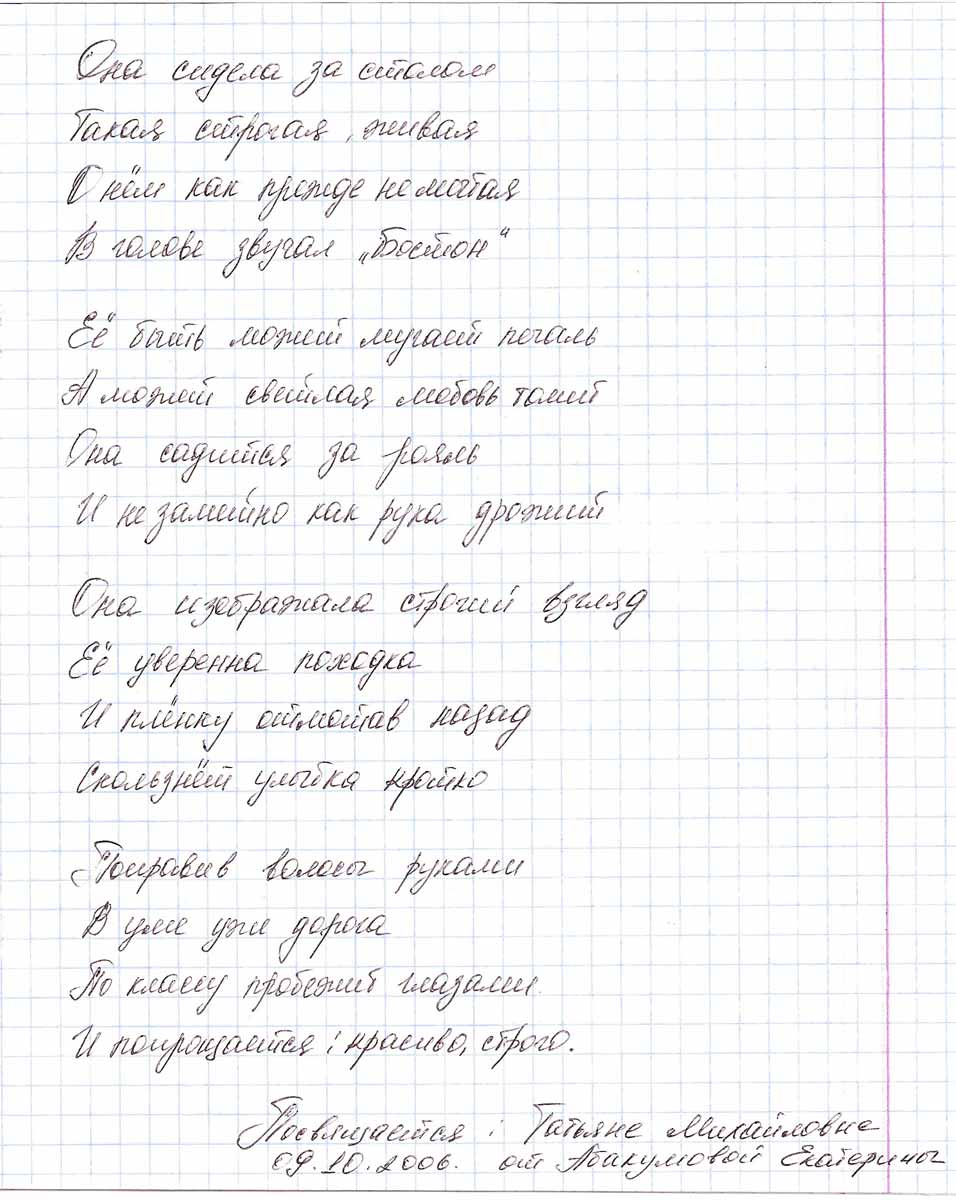 Она сидела за столом
Такая строгая, живая
О нём как прежде не мотая
В голове звучал „Бостон“
Её быть может мучает печаль
А может светлая любовь томит
Она садится за рояль
И незаметно как рука дрожит
Она изображала строгий взгляд
Её уверенна походка
И плёнку отмотав назад
Скользнёт улыбка кротко
Поправив волосы руками
В уме уже дорога
По классу пробежит глазами
И попрощается: красиво, строго.
Посвящается: Татьяне Михайловне
09.10.2006. от Абакумовой Екатерины